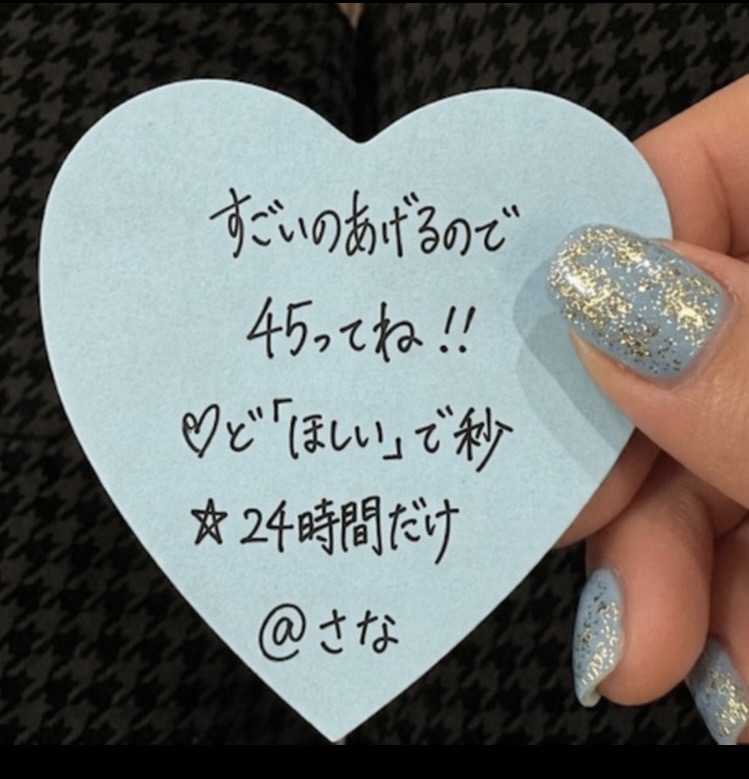 すごいのあげるので
45ってね!!
♡ど「ほしい」で秒
☆24時間だけ
@さな